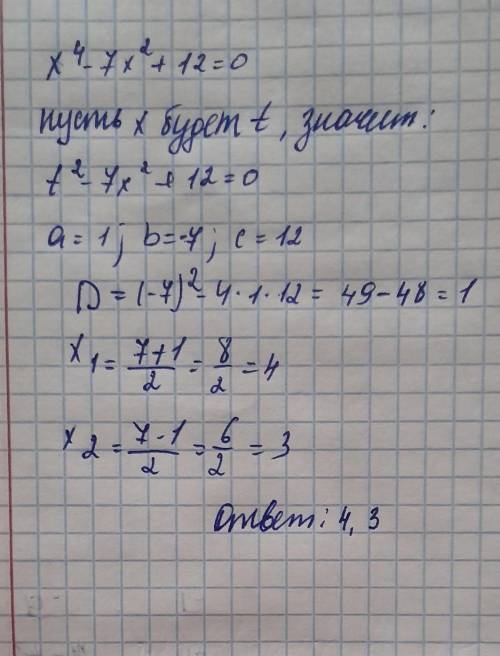 x⁴ - 7x² + 12 = 0
пусть x будет t, значит:
t² - 7x² + 12 = 0
a = 1; b = -7; c = 12
D = (-7)² - 4 · 1 · 12 = 49 - 48 = 1
x₁ = (7+1)/2 = 8/2 = 4
x₂ = (7-1)/2 = 6/2 = 3
Ответ: 4, 3